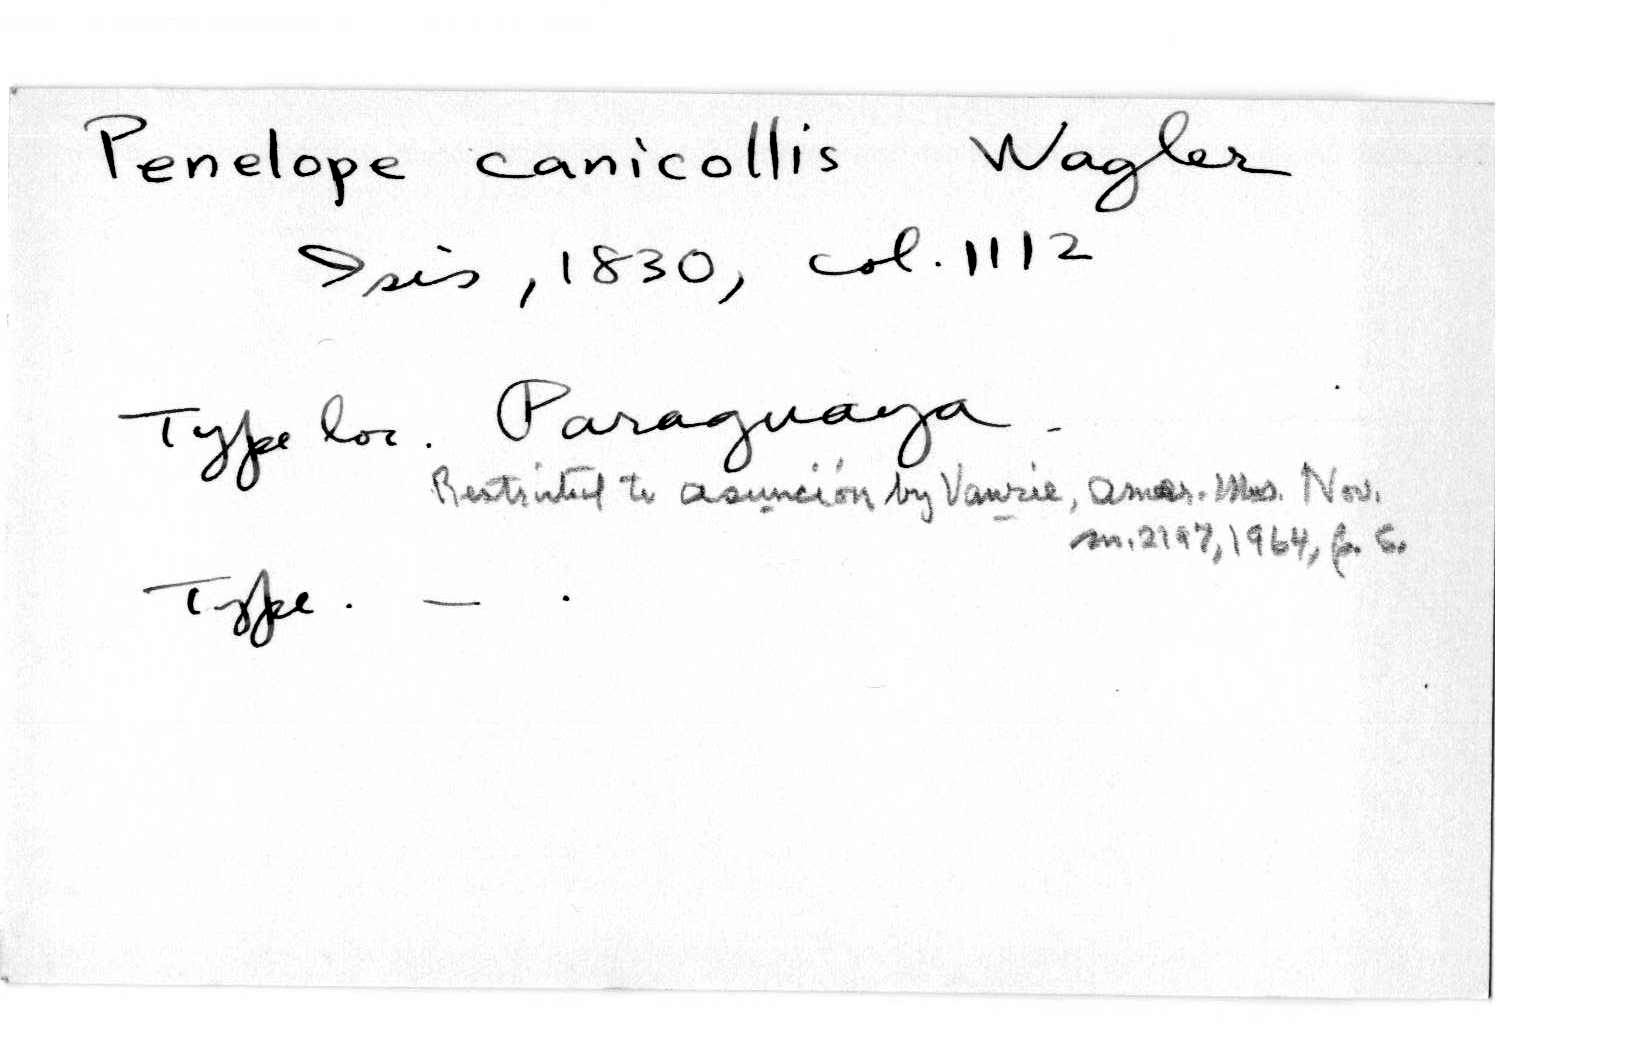 Penelope canicollis Wagler
Isis, 1830, col. 1112
Type loc. Paraguaya.
Restricted to Asunción by Vaurie, Amer. Mus. Nov.
no. 2197, 1964, p. 5.
Type. — .